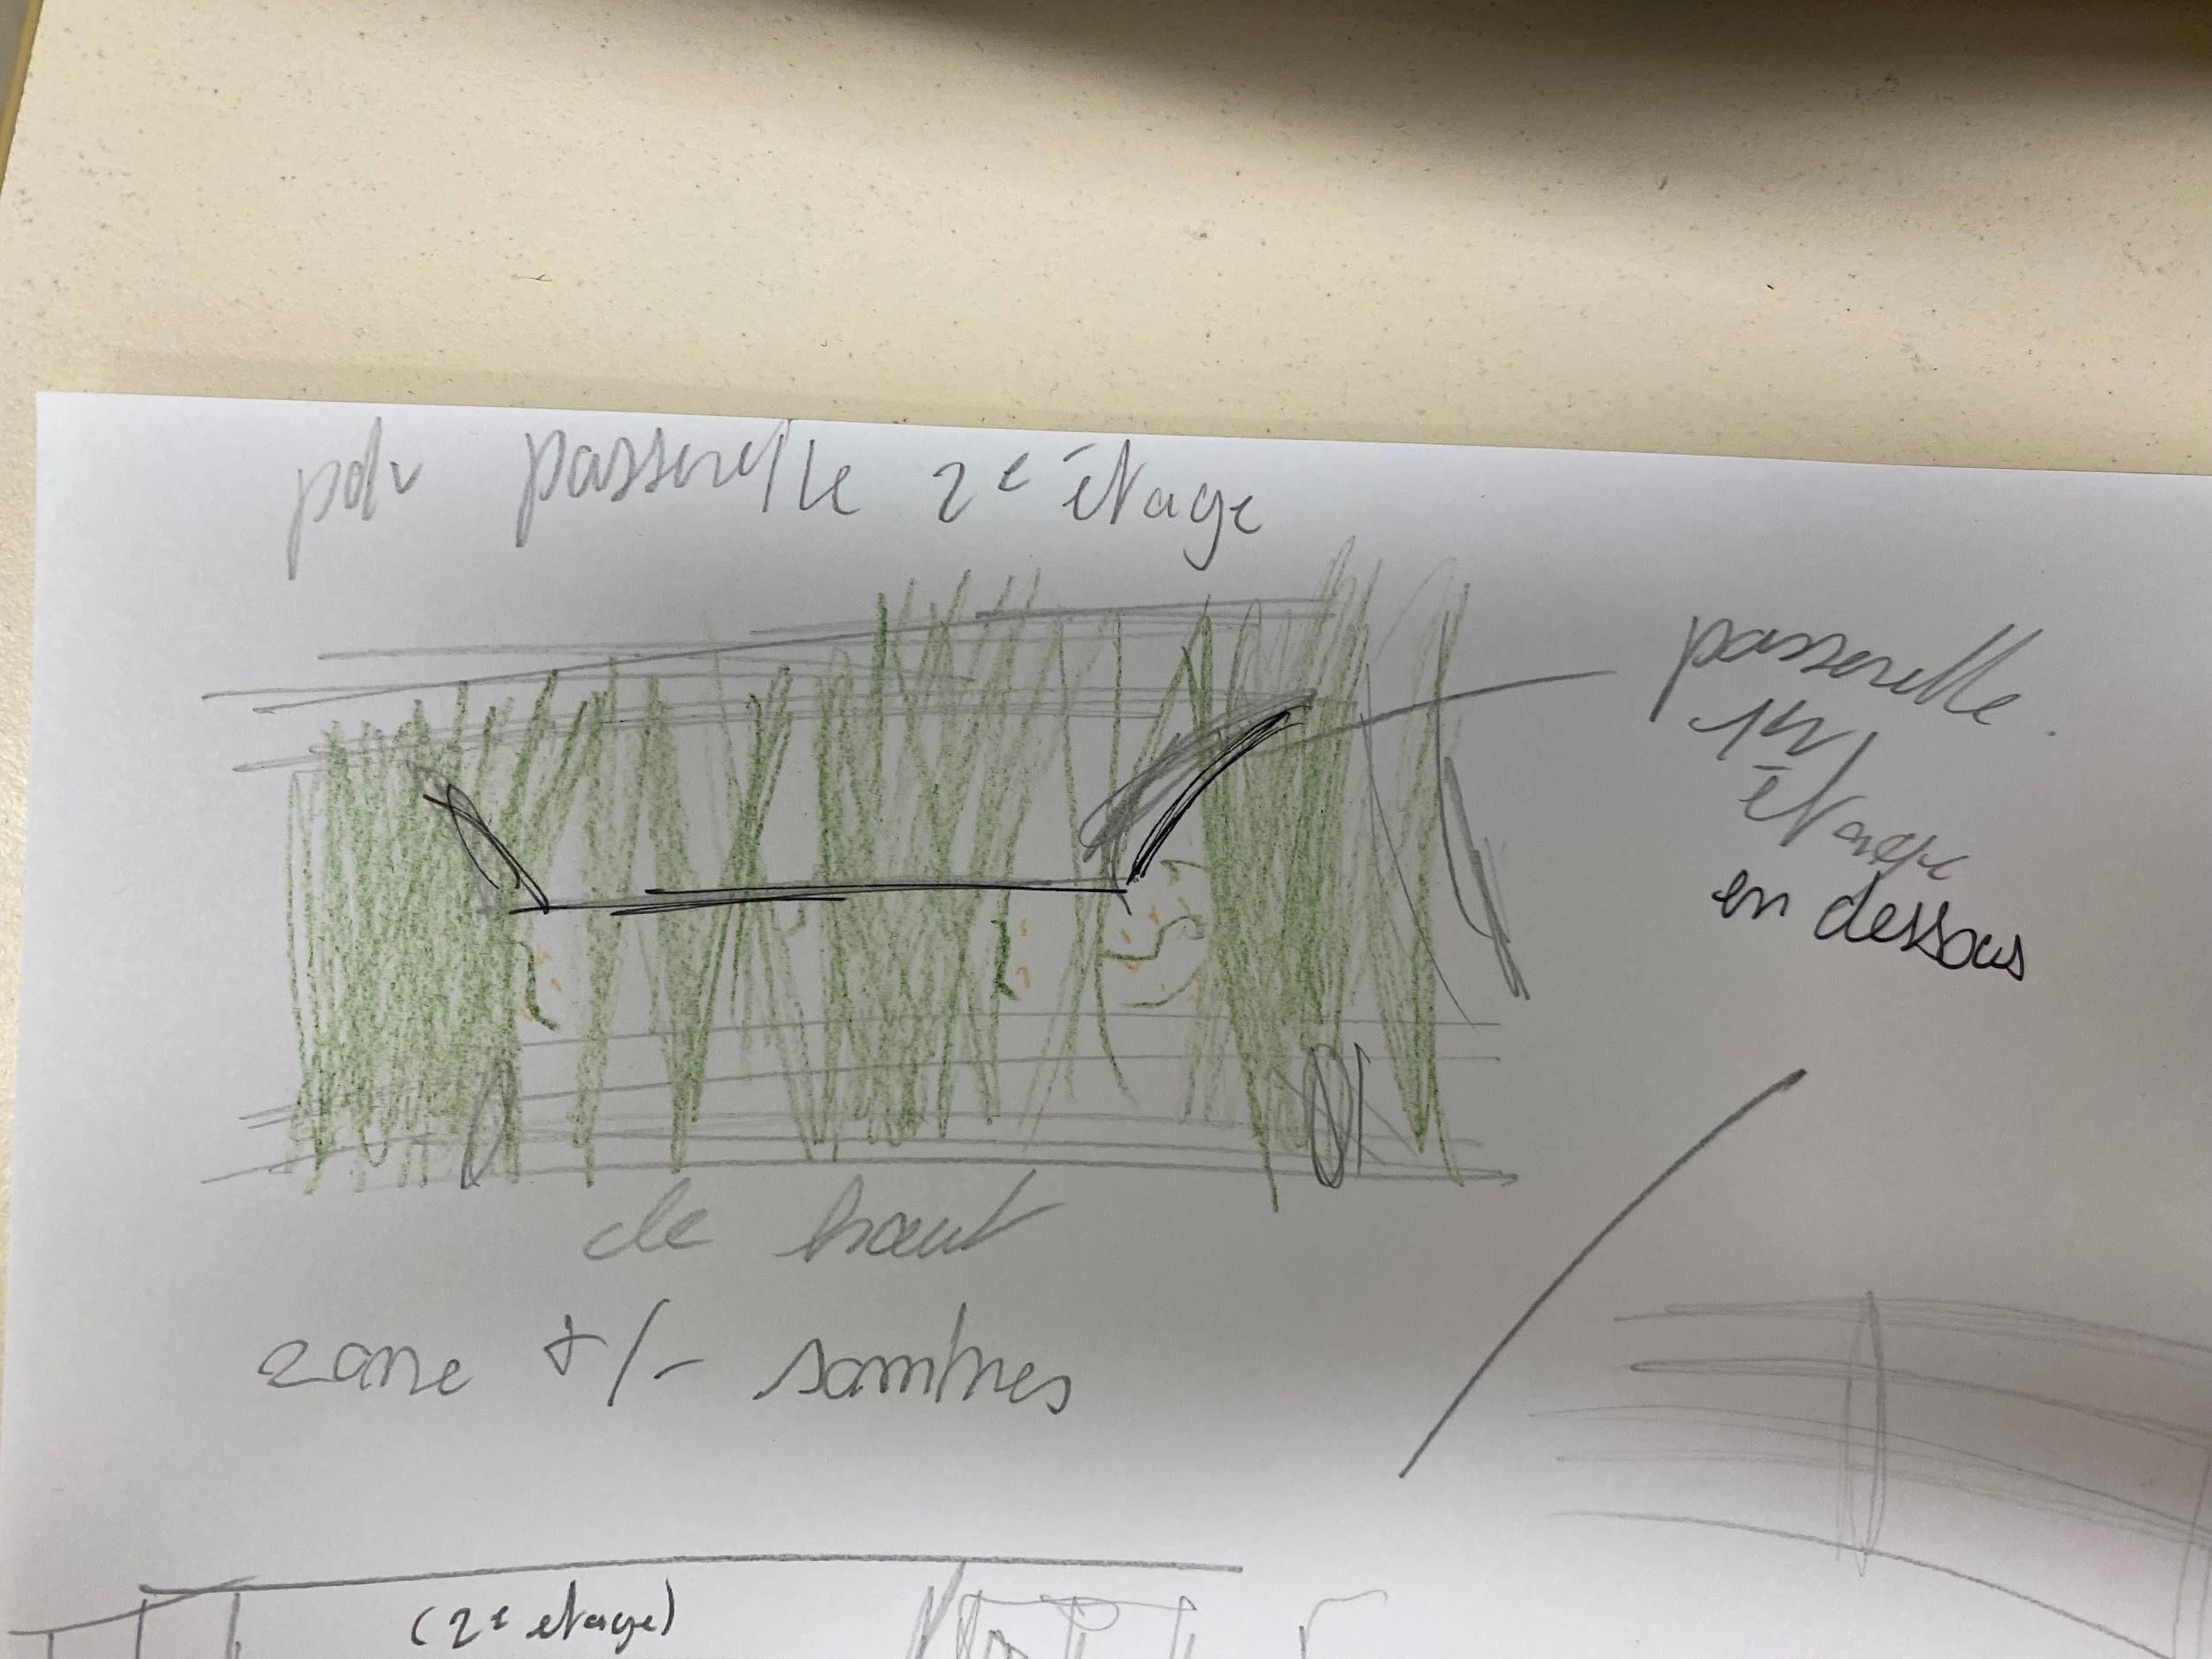 pdv passerelle 2e étage
passerelle
1er
étage
en dessous
de haut
zone +/- sombres
(2e etage)